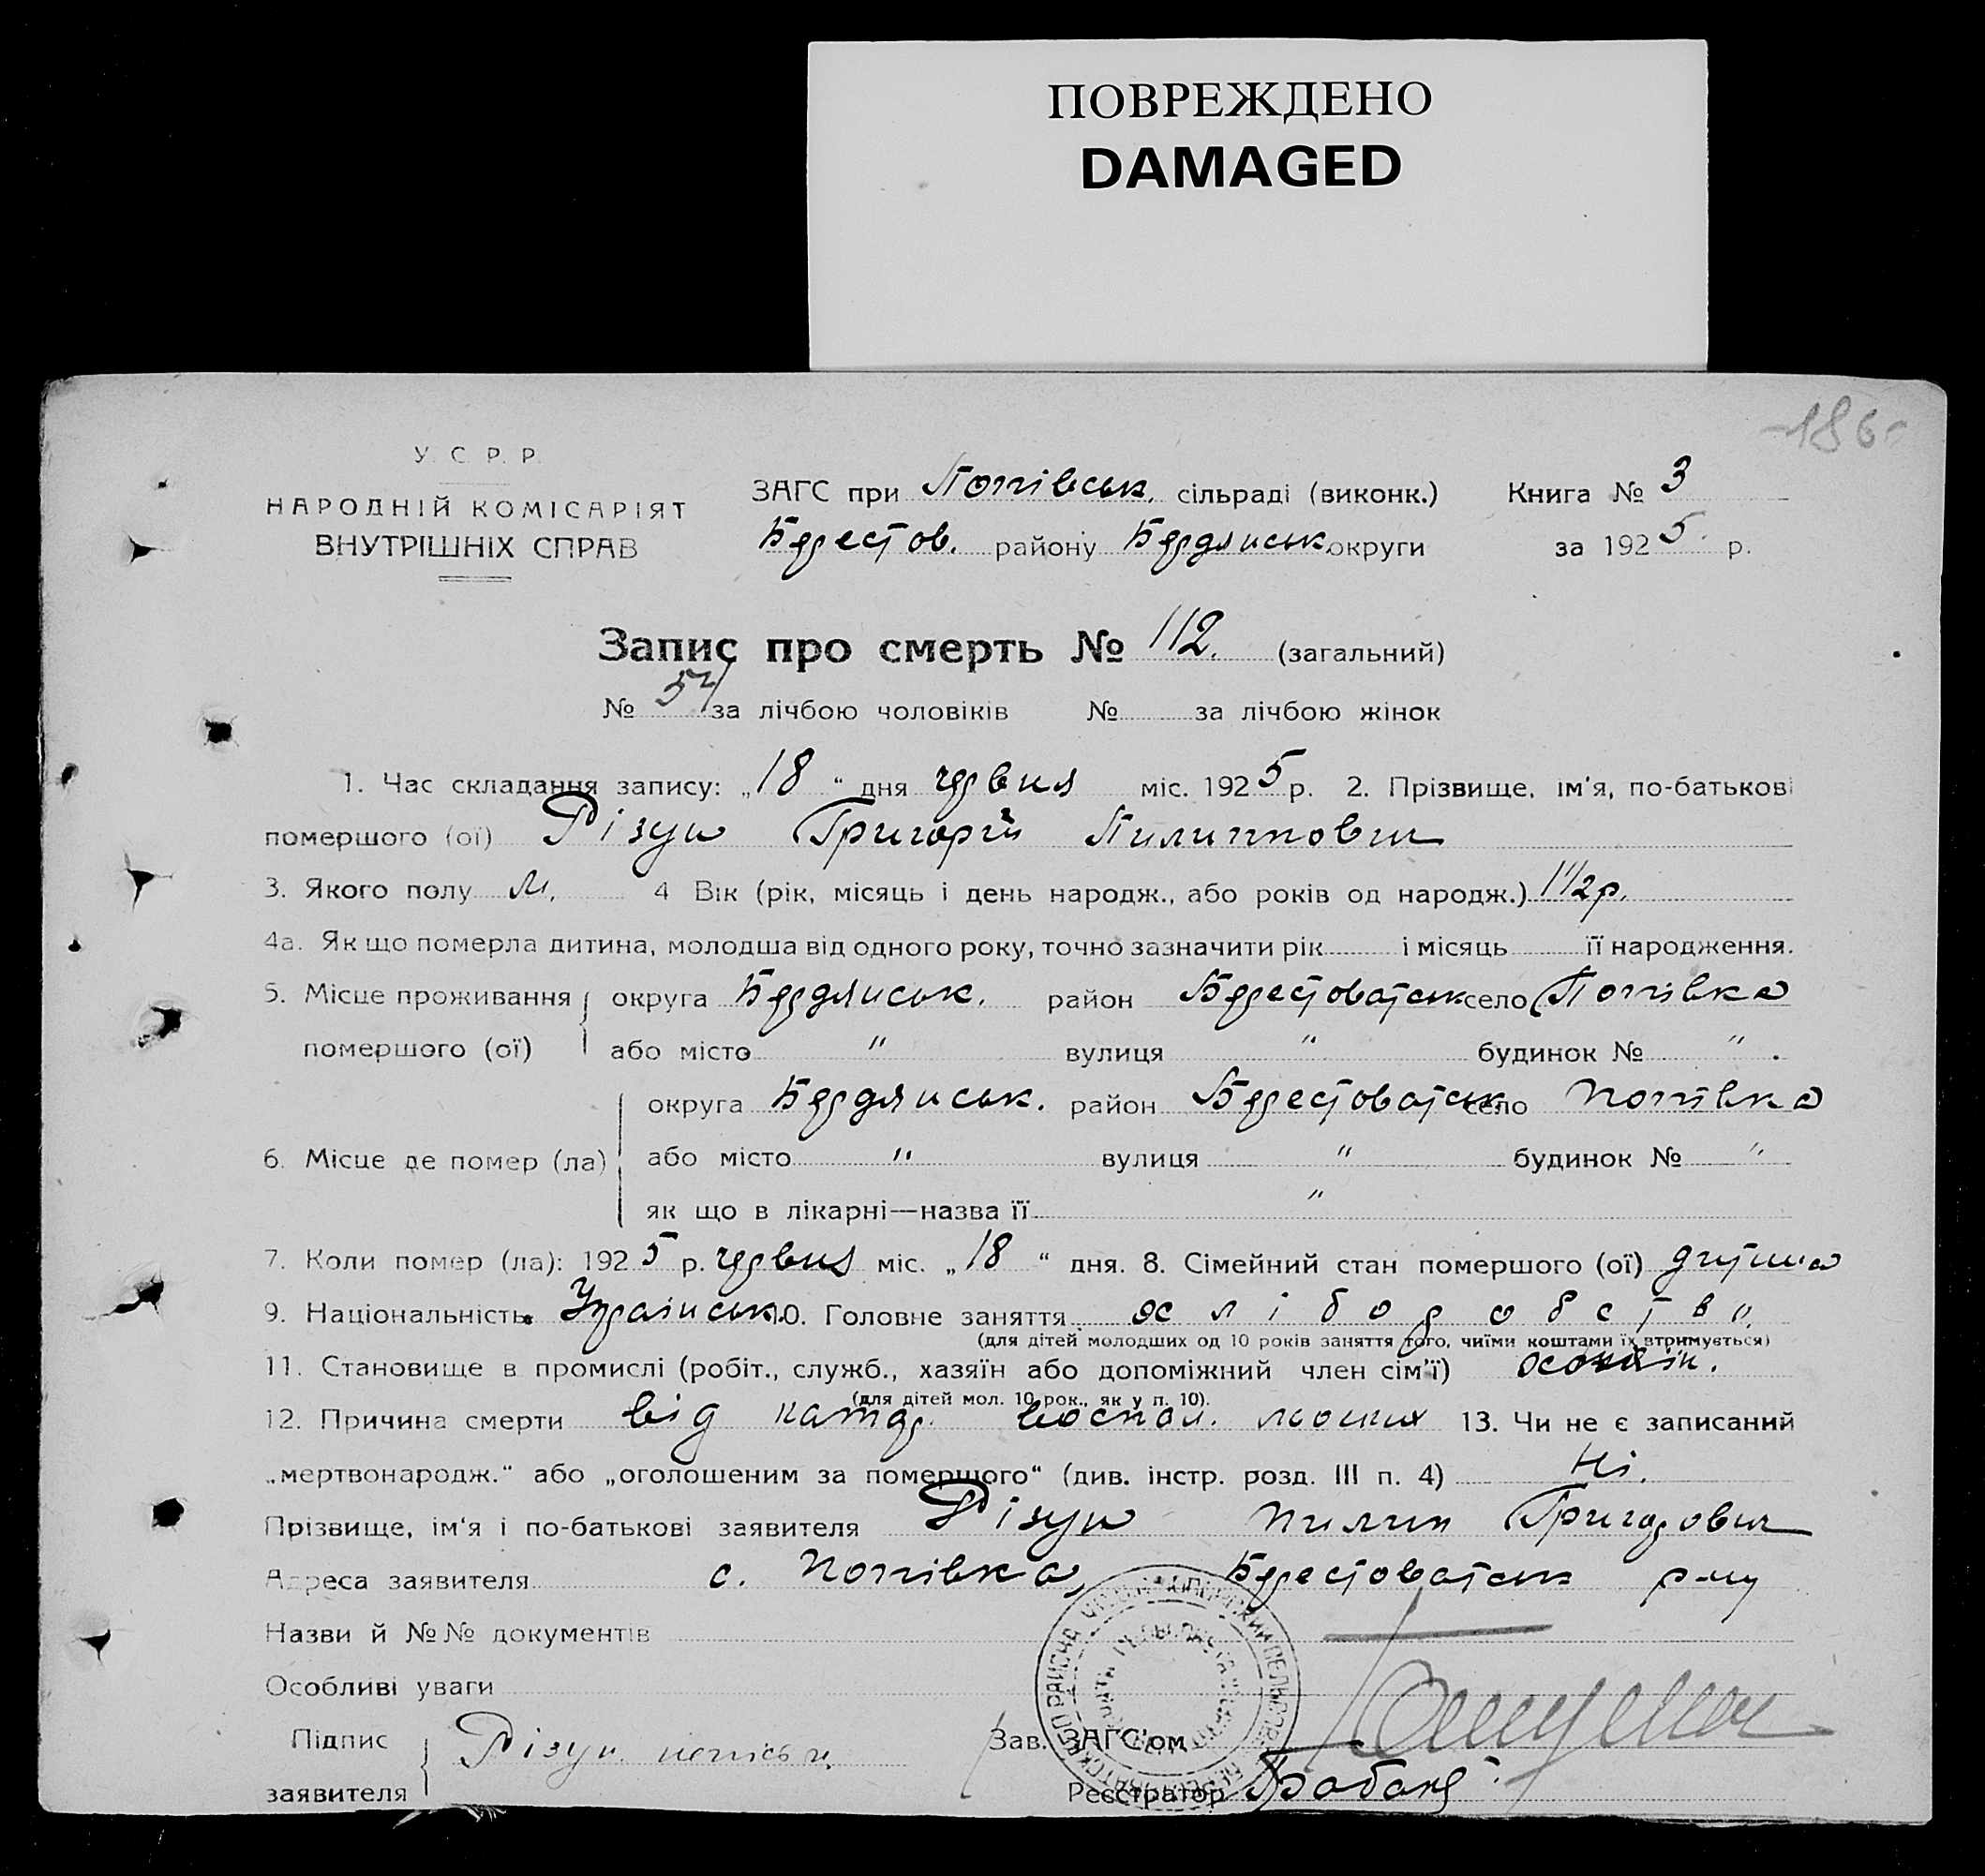 ПОВРЕЖДЕНО
DAMAGED
-186-
У. С. Р. Р.
НАРОДНІЙ КОМІСАРІЯТ
ВНУТРІШНІХ СПРАВ
ЗАГС при Попівськ. сільраді (виконк.) Книга № 3
Берестов. району Бердянськ. округи за 1925 р.
Запис про смерть № 112. (загальний)
№ 54 за лічбою чоловіків № за лічбою жінок
1. Час складання запису: „18“ дня червня міс. 1925 р. 2. Прізвище, ім'я, по-батькові
помершого (ої) Різун Григорій Пилипович
3. Якого полу м. 4 Вік (рік, місяць і день народж., або років од народж.) 1 1/2 р.
4а. Як що померла дитина, молодша від одного року, точно зазначити рік і місяць її народження.
5. Місце проживання округа Бердянськ. район Берестоватськ село Попівка
помершого (ої) або місто " вулиця " будинок № "
округа Бердянськ. район Берестоватськ село Попівка
6. Місце де помер (ла) або місто " вулиця " будинок № "
як що в лікарні—назва її "
7. Коли помер (ла): 1925 р. червня міс. „18“ дня. 8. Сімейний стан помершого (ої) дитина
9. Національність Українськ. 10. Головне заняття хліборобство
(для дітей молодших од 10 років заняття того, чиїми коштами їх втримується)
11. Становище в промислі (робіт., служб., хазяїн або допоміжний член сім'ї)
(для дітей мол. 10 рок., як у п. 10).
12. Причина смерти від катар. воспал. 13. Чи не є записаний
„мертвонародж.“ або „оголошеним за померщого“ (див. інстр. розд. III п. 4) Ні.
Прізвище, ім'я і по-батькові заявителя Різун Пилип Григорович
Адреса заявителя с. Попівка, Берестоватськ р-ну
Назви й №№ документів
Особливі уваги
Підпис Різун неписьм. Зав. ЗАГС'ом
заявителя Реєстратор